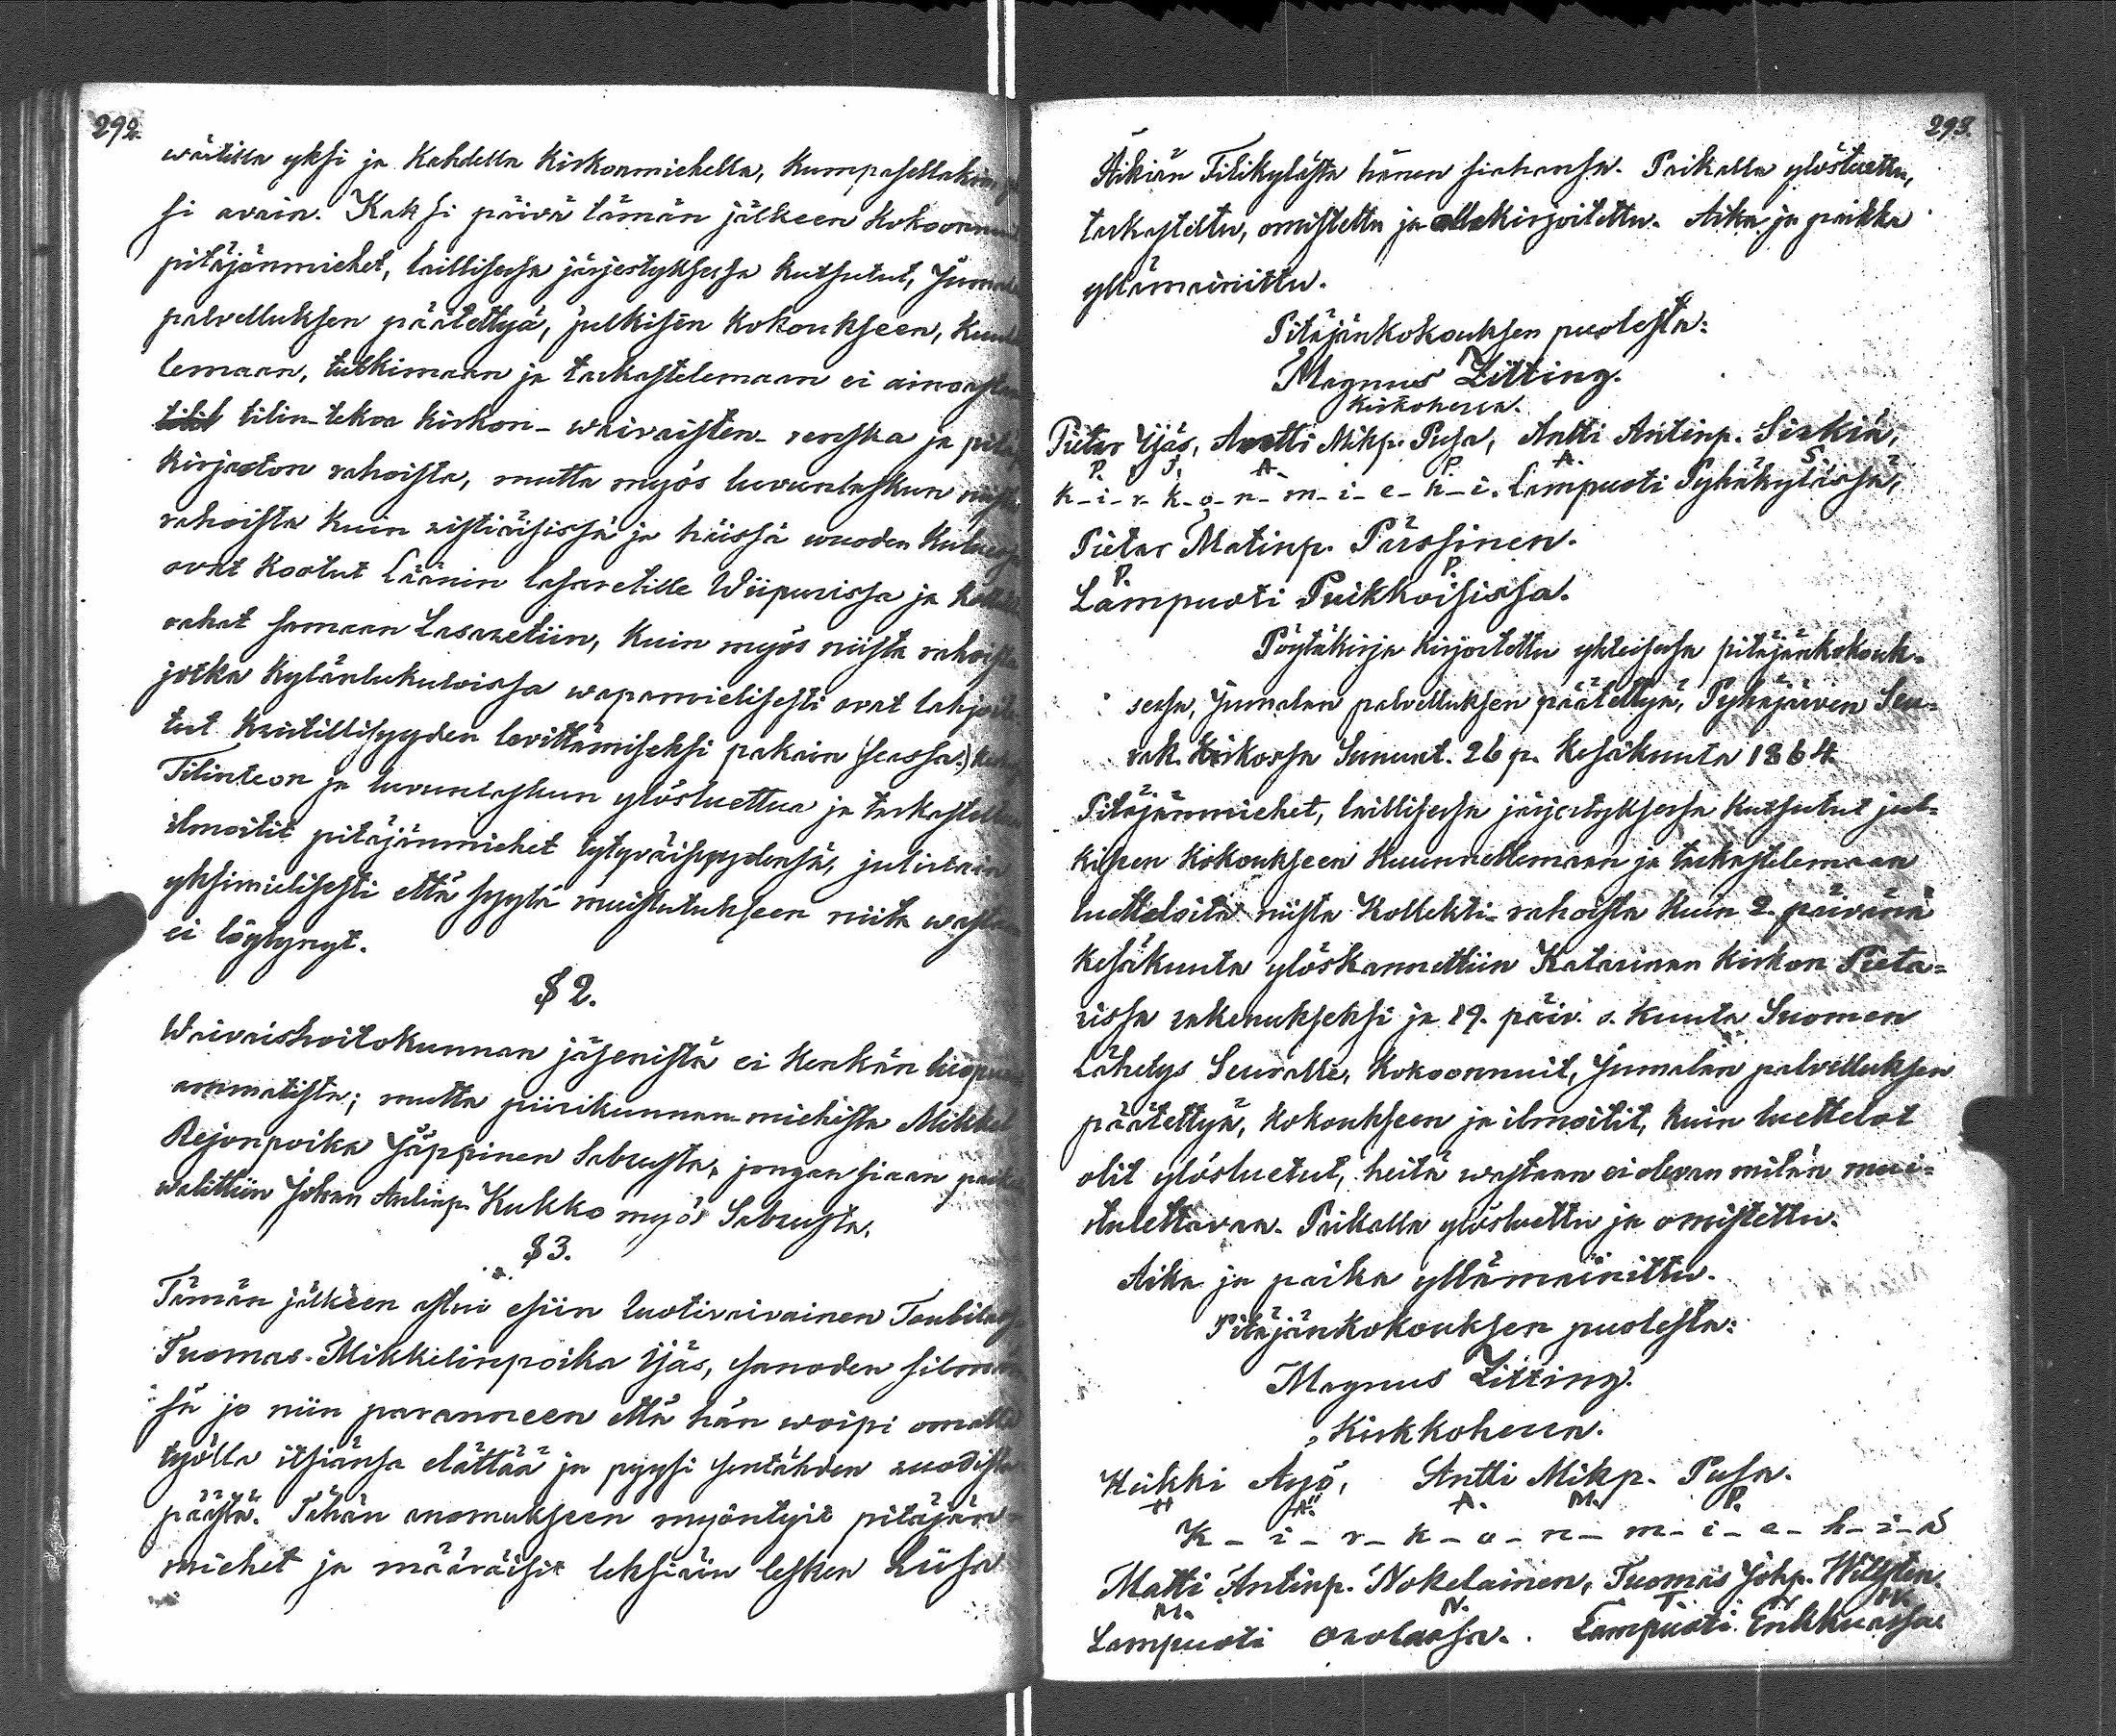 292.
wärtilla yksi ja Kahdella Kirkonmiehella, Kumpasellakin
si avain. Kaksi päivä tämän jälkeen Kokoonnuit
pitäjänmiehet, laillisessa järjestyksessä Kutsutut, Jumalan
palvelluksen päätettyä, julkiseen Kokoukseen, Kuunte
lemaan, tutkimaan ja tarkastelemaan ei ainoastaan
tilin-tekoa Kirkon- waivaisten- ja
Kirjaston rahoista, mutta myös luvunlaskun niistä
rahoista Kuin ristiäisissä ja häissä wuoden Kuluessa
ovat Kootut Läänin lasaretille Wiipurissa ja
rahat samaan Lasaretiin, Kuin myös niistä rahoista
jotka Kylänlukuloissa wapamielisesti ovat lahjoite
tut Kristillisyyden levittämiseksi pakain seassa.
Tilinteon ja luvunlaskun ylösluettua ja tarkasteltua
ilmoitit pitäjänmiehet tytyväisyydensä, julistain
yksimielisesti että syytä muistutukseen niitä wastaan
ei löytynyt.
§ 2.
Waivaishoitokunnan jäsenistä ei Kenkän luopunut
ammatista; mutta piirikunnan-miehistä Mikkel
Rejonpoika Jäppinen Sabrusta, jongan siaan paikalla
walittiin Johan Antinp. Kukko myös Sabrusta.
§ 3.
Tämän jälkeen astui esiin luotivaivainen Taubilasta
Tuomas Mikkelinpoika Ijäs, sanoden silmän
sä jo niin paranneen että hän woipi omalla
työllä itsiänsä elättää ja pyysi sentähden ruodista
päästä. Tähän anomukseen myöntyit pitäjän-
miehet ja määräisit leksiäin lesken Liisa
293.
Äikiän Tiilikylästä hänen siahansa. Paikalla ylösluettu,
tarkasteltu, omistettu ja allekirjoitettu. Aika ja paikka
yllämainittu.
Pitäjänkokouksen puolesta:
Magnus Zitting.
Kirkoherra.
Pietar Ijäs, Antti Mikp. Pusa, Antti Antinp. Sirkiä,
P. J. A. P. A. S.
k-i-r-k-o-n-m-i-e-h-i. Lampuoti Pyhäkylässä,
Pietar Matinp. Pärssinen.
P. P.
Lampuoti Puikkoisissa.
Pöytäkirja Kirjoitettu yhteisessä pitäjänkokouk-
sessa, Jumalan palvelluksen päätettyä, Pyhäjärven Seu-
rak. Kirkossa Sununt. 26 p. Kesäkuuta 1864.
Pitäjänmiehet, laillisessa järjestyksessä Kutsutut jul-
kiseen Kokoukseen Kuunnellemaan ja tarkastelemaan
luetteloita niistä Kollekti-rahoista Kuin 2. päivänä
Kesäkuuta ylöskannettiin Katarinan Kirkon Pieta-
rissa rakenukseksi ja 19. päiv. s. Kuuta Suomen
Lähetys Seuralle, Kokoonnuit, Jumalan palvelluksen
päätettyä, Kokoukseen ja ilmoitit, Kuin luettelot
olit ylösluetut, heitä wastaan ei olevan mitän mui-
stutettavaa. Paikalla ylösluettu ja omistettu.
Aika ja paika yllämainittu.
Pitäjänkokouksen puolesta:
Magnus Zitting.
Kirkkoherra.
Heikki Äyö, Antti Mikp. Pusa.
H Ä. A. M. P.
K-i-r-k-o-n-m-i-e-h-i-ä
Matti Antinp. Nokelainen, Tuomas Johp. Willsten.
M. N. T. W.
Lampuoti Lampuoti Enkkuassa.